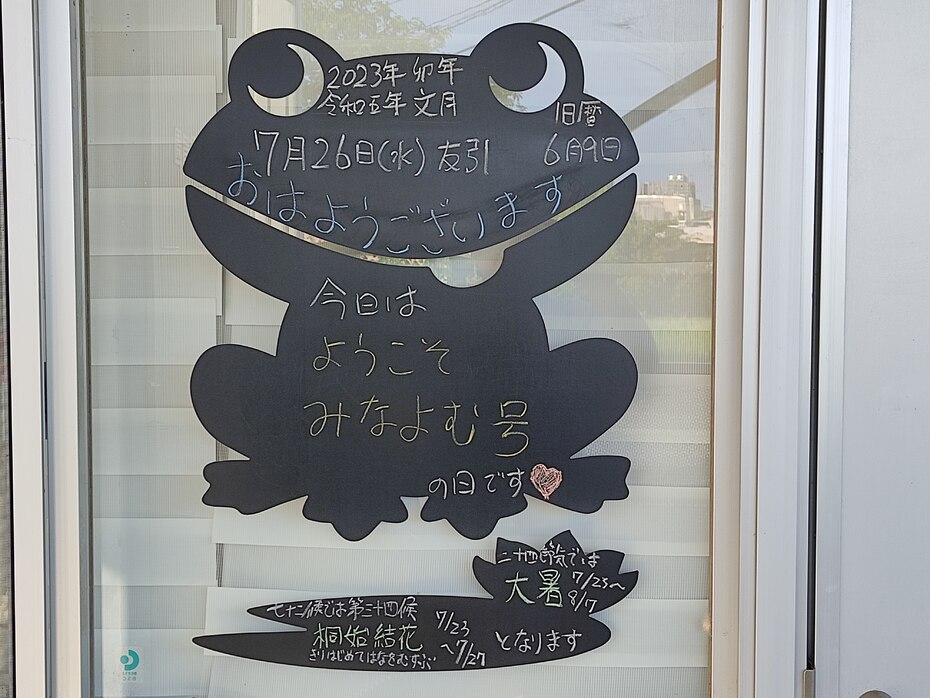 2023年 卯年
令和五年 文月
旧暦
7月26日(水) 友引
6月9日
おはようございます
今日は
ようこそ
みなよむ号
の日です
二十四節気では
大暑 7/23〜
8/7
七十二候では第三十四候
桐始結花
きりはじめてはなをむすぶ
7/23
〜7/27
となります